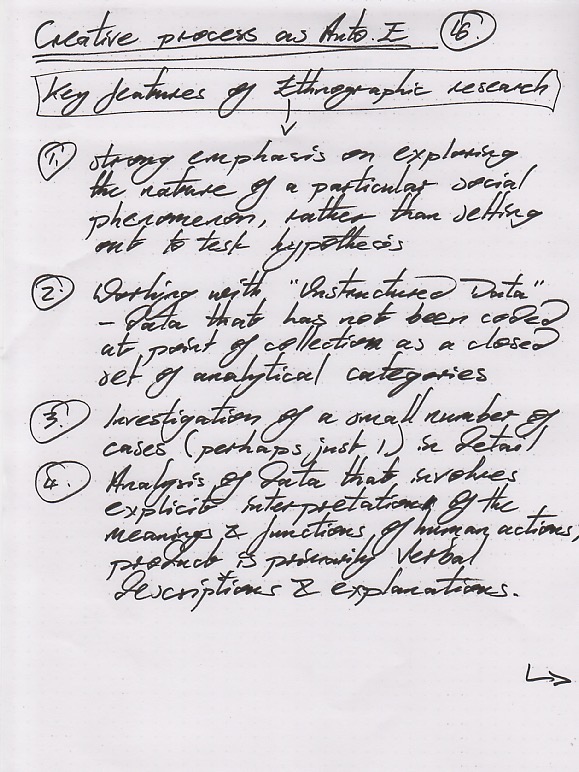 Creative process as Auto.E 16.
Key features of Ethnographic research
1. strong emphasis on exploring
the nature of a particular social
phenomenon, rather than setting
out to task hypothesis
2. Working with "Unstructured Data"
– data that has not been coded
at point of collection as a closed
set of analytical categories
3. Investigation of a small number of
cases (perhaps just 1) in detail
4. Analysis of data that involves
explicit interpretations of the
meanings & functions of human actions,
product is primarily verbal
descriptions & explanations.